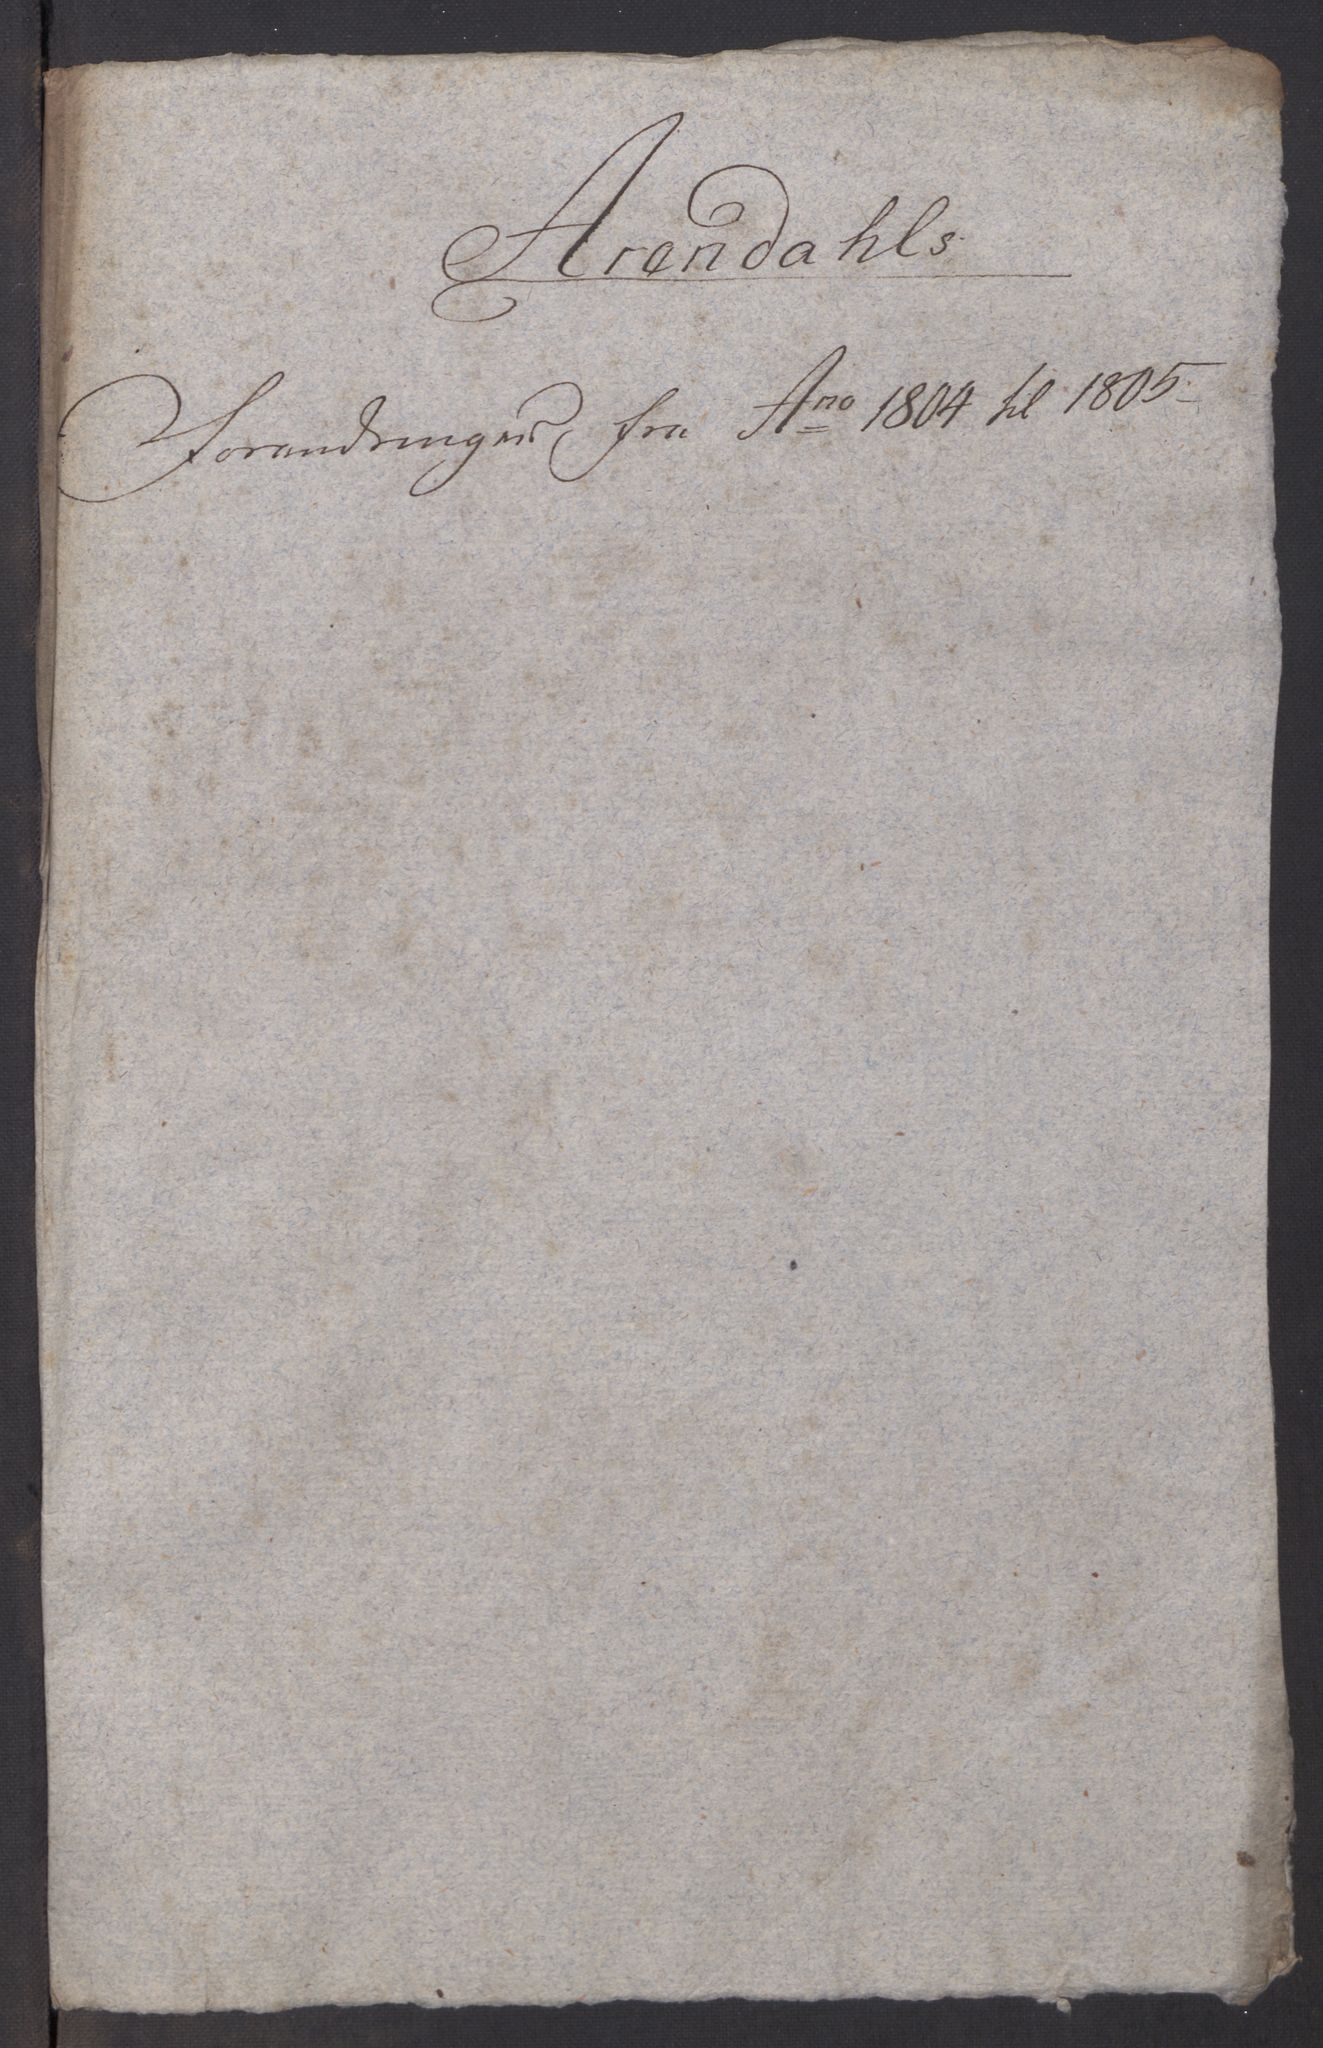 Arendahls
Forandringer fra Ano 1804 til 1805